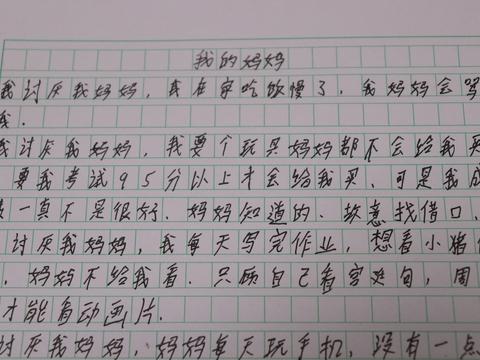 我的妈妈
我讨厌我妈妈，我在家吃饭慢了，我妈妈会骂
我.
我讨厌我妈妈，我要个玩具妈妈都不会给我买
要我考试95分以上才会给我买.可是我成
一真不是很好.妈妈知道的.故意找借口.
讨厌我妈妈，我每天写完作业，想看小猪
.妈妈不给我看.只顾自己看宫爽旬，周
才能看动画片.
讨厌我妈妈，妈妈每天玩手机，没有一点